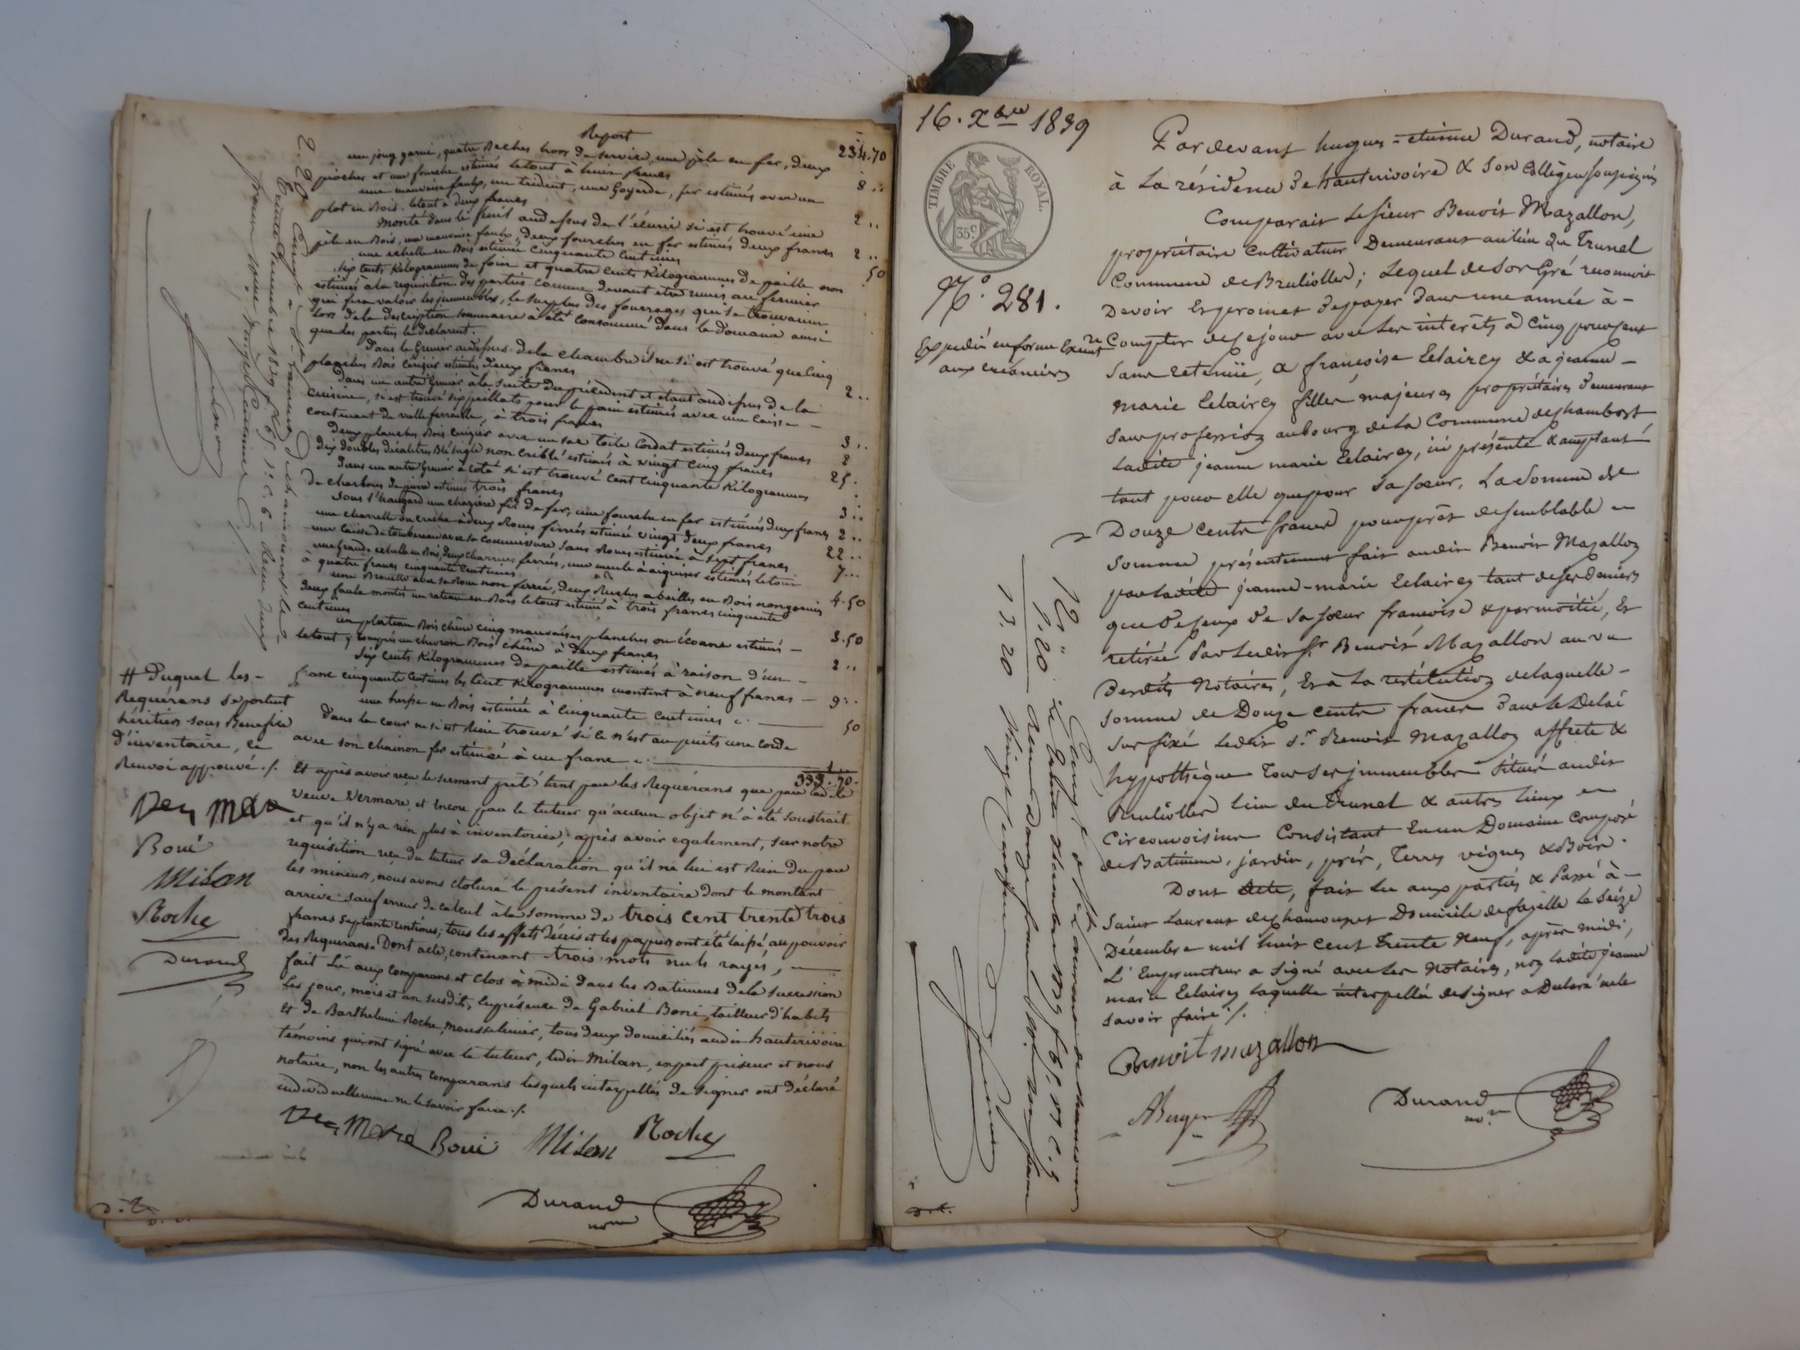 Report
234.70
un joug garni, quatre Beches hors de service, une pèle en fer, deux
pioches et une fourche estimés letout à huit francs
8 ..
une mauvaise faulx, un trident, une Goyarde, fer estimés avec un
plot en Bois. letout à deux francs
2 ..
Monté dans le fenil au dessus de l'écurie si est trouvé une
pèle en Bois, une mauvaise faulx, deux fourches en fer estimés deux francs
2 ..
une echelle en Bois estimée Cinquante Centimes
50
Sept cents Kilogrammes de foin et quatre cents Kilogrammes de paille non
estimés à la requisition des parties comme devant etre remis au fermier
qui fera valoir les immeubles, le surplus des fourrages qui se trouvaient
lors de la description sommaire a été consommé dans le domaine ainsi
que les parties le déclarent.
Dans le Grenier audessus de la chambre il ne si est trouvé que cinq
planches Bois Cerisier estimées deux francs
2 ..
Dans un autre Grenier à la suite du précédent et étant audessus de la
Cuisine, si est trouvé six paillats pour le pain estimés avec une caisse
contenant de vielle ferraille, à trois francs
3 ..
Deux planches Bois Cerisier avec un sac toile Cordat estimés deux francs
2
Dix doubles décalitres Blé seigle non criblé estimés à vingt cinq francs
25 .
Dans un autre Grenier à coté si est trouvé cent cinquante Kilogrammes
de charbons de pierre estimés trois francs
3 ..
Sous l'hangard une chazière fil de fer, une fourche en fer estimés deux francs
2 ..
une charrette ou cruche à deux Roues ferrées estimée vingt deux francs
22 ..
une caisse de tombereau avec la commissure sans Roues estimée à sept francs
7 ..
une Grande echelle en Bois, deux charrues ferrées, une meule à aiguiser estimés letout
à quatre francs cinquante Centimes
4.50
une Brouette avec sa Roue non ferrée, deux Ruches à abeilles en Bois non garnies
deux faulx montés un rateau en Bois letout estimé à trois francs cinquante
centimes
3.50
un plateau Bois chêne cinq mauvaises planches ou écoane estimés
letout y compris un chevron Bois chêne à Deux francs
2 ..
Six cents Kilogrammes de paille estimés à raison d'un
franc cinquante Centimes les cent Kilogrammes montent à neuf francs
9 ..
une herse en Bois estimée à Cinquante centimes
50
Dans la cour ne si est Rien trouvé si ce n'est au puits une corde
avec son chainon fer estimée à un franc
1 ..
333.70.
Et après avoir reçu le serment prêté tant par les Requérans que par la de
Veuve Vermare, et encore par le tuteur qu'aucun objet n'a été soustrait
et qu'il n'y a rien plus à inventorier; après avoir également, sur notre
requisition reçu du tuteur sa déclaration qu'il ne lui est Rien du par
les mineurs, nous avons cloturé le présent inventaire dont le montant
arrive sauf erreur de calcul à la somme de trois cent trente trois
francs septante centimes; tous les effets décris et les papiers ont été laissé au pouvoir
des Requerans. Dont acte, contenant trois mots nuls rayés,
fait Lu aux comparans et clos à midi dans les Batimens de la succession
les jour, mois et an susdits, en présence de Gabriel Boni, tailleur d'habits
et de Barthelemi Roche, mousselinier, tous deux domiciliés audit hauterivoire
témoins qui ont signé avec le tuteur, ledit Milan, expert priseur et nous
notaire, non les autres comparans lesquels interpellés de signer ont déclaré
individuellement ne le savoir faire ./.
# Duquel les
Requérans se portent
héritiers sous Benefice
d'inventaire, ce
Renvoi approuvé ./.
Boni
Milan
Roche
Durand
Boni Milan Roche
Durand
16. Xbre 1839
TIMBRE ROYAL.
35c
No. 281.
Expédié en forme Exécutre
aux créanciers
Pardevant hugues-etienne Durand, notaire
à La résidence de hauterivoire & son Collègue soussignés
Comparait le sieur Benoit Mazallon,
propriétaire Cultivateur Demeurant aulieu du Trunel
Commune de Brullioles; Lequel de son Gré reconnoit
Devoir Et promet de payer dans une année à
Compter de ce jour avec les intérêts à Cinq pour cent
sans retenüe, a françoise Eclaircy & a jeanne
marie Eclaircy filles majeures propriétaires demeurant
sans profession au bourg de la Commune de chambost
Ladite jeanne marie Eclaircy, ici présente & acceptant
tant pour elle que pour sa sœur, La somme de
Douze cents francs pour prêt de semblable
somme présentement fait audit Benoit Mazallon
par ladite jeanne-marie Eclaircy tant de ses deniers
que de ceux de sa sœur francoise & par moitié, Et
retirée Par Ledit Sr Benoit Mazallon au vu
Desdits Notaires, Et à La restitution de laquelle
somme de Douze cents francs dans le Delai
sus fixé Ledit Sr. Benoit Mazallon affecte &
hypothèque Tous ses immeubles Situés audit
Brullioles lieu du Trunel & autres lieux
Circonvoisins Consistant En un Domaine Composé
de Batimens, jardin, prés, Terres vignes & Bois.
Dont Acte, fait Lu aux parties & Passé à
Saint Laurent de chamousset Domicile de fazelle Le Seize
Décembre mil huit cent Trente Neuf, après midi,
L'Emprunteur a signé avec Les Notaires, non ladite jeanne
marie Eclaircy laquelle interpellée de signer a Déclaré ne le
savoir faire ./.
Benoit mazallon
Durand